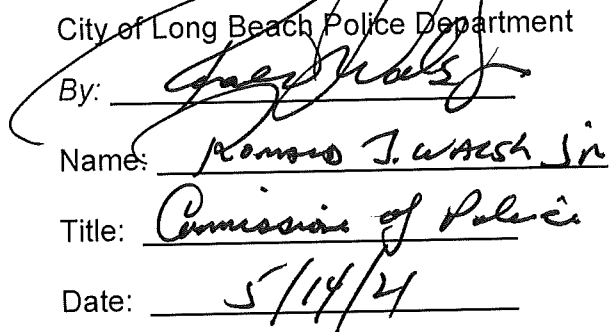 City of Long Beach Police Department
By:
Name: Ronald J. Walsh Jr
Title: Commissione of Police
Date: 5/14/21